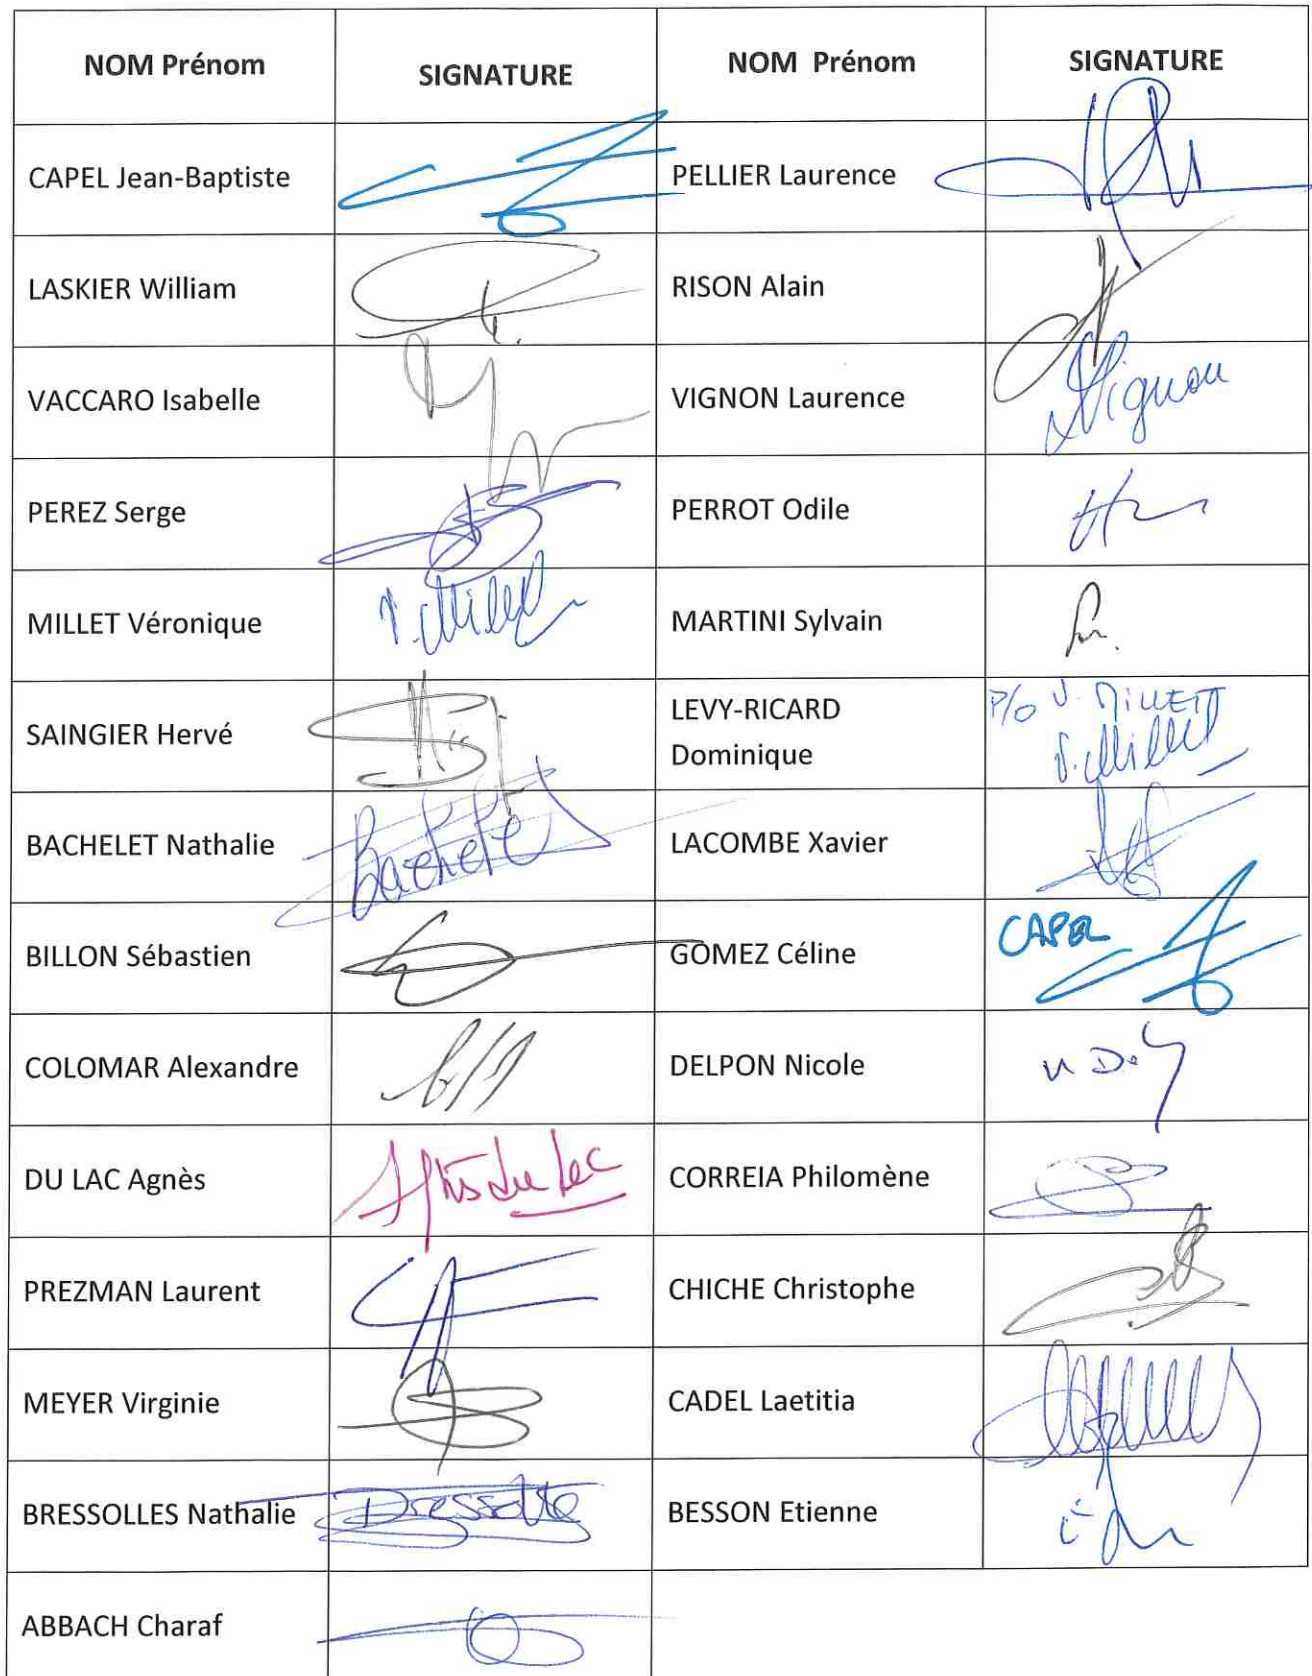 NOM Prénom SIGNATURE NOM Prénom SIGNATURE
CAPEL Jean-Baptiste PELLIER Laurence
LASKIER William RISON Alain
VACCARO Isabelle VIGNON Laurence Vignon
PEREZ Serge PERROT Odile
MILLET Véronique V. Millet MARTINI Sylvain
SAINGIER Hervé LEVY-RICARD P/O V. MILLET
Dominique V. Millet
BACHELET Nathalie Bachelet LACOMBE Xavier
BILLON Sébastien GOMEZ Céline CAPEL
COLOMAR Alexandre DELPON Nicole
DU LAC Agnès du Lac CORREIA Philomène
PREZMAN Laurent CHICHE Christophe
MEYER Virginie CADEL Laetitia
BRESSOLLES Nathalie BESSON Etienne
ABBACH Charaf